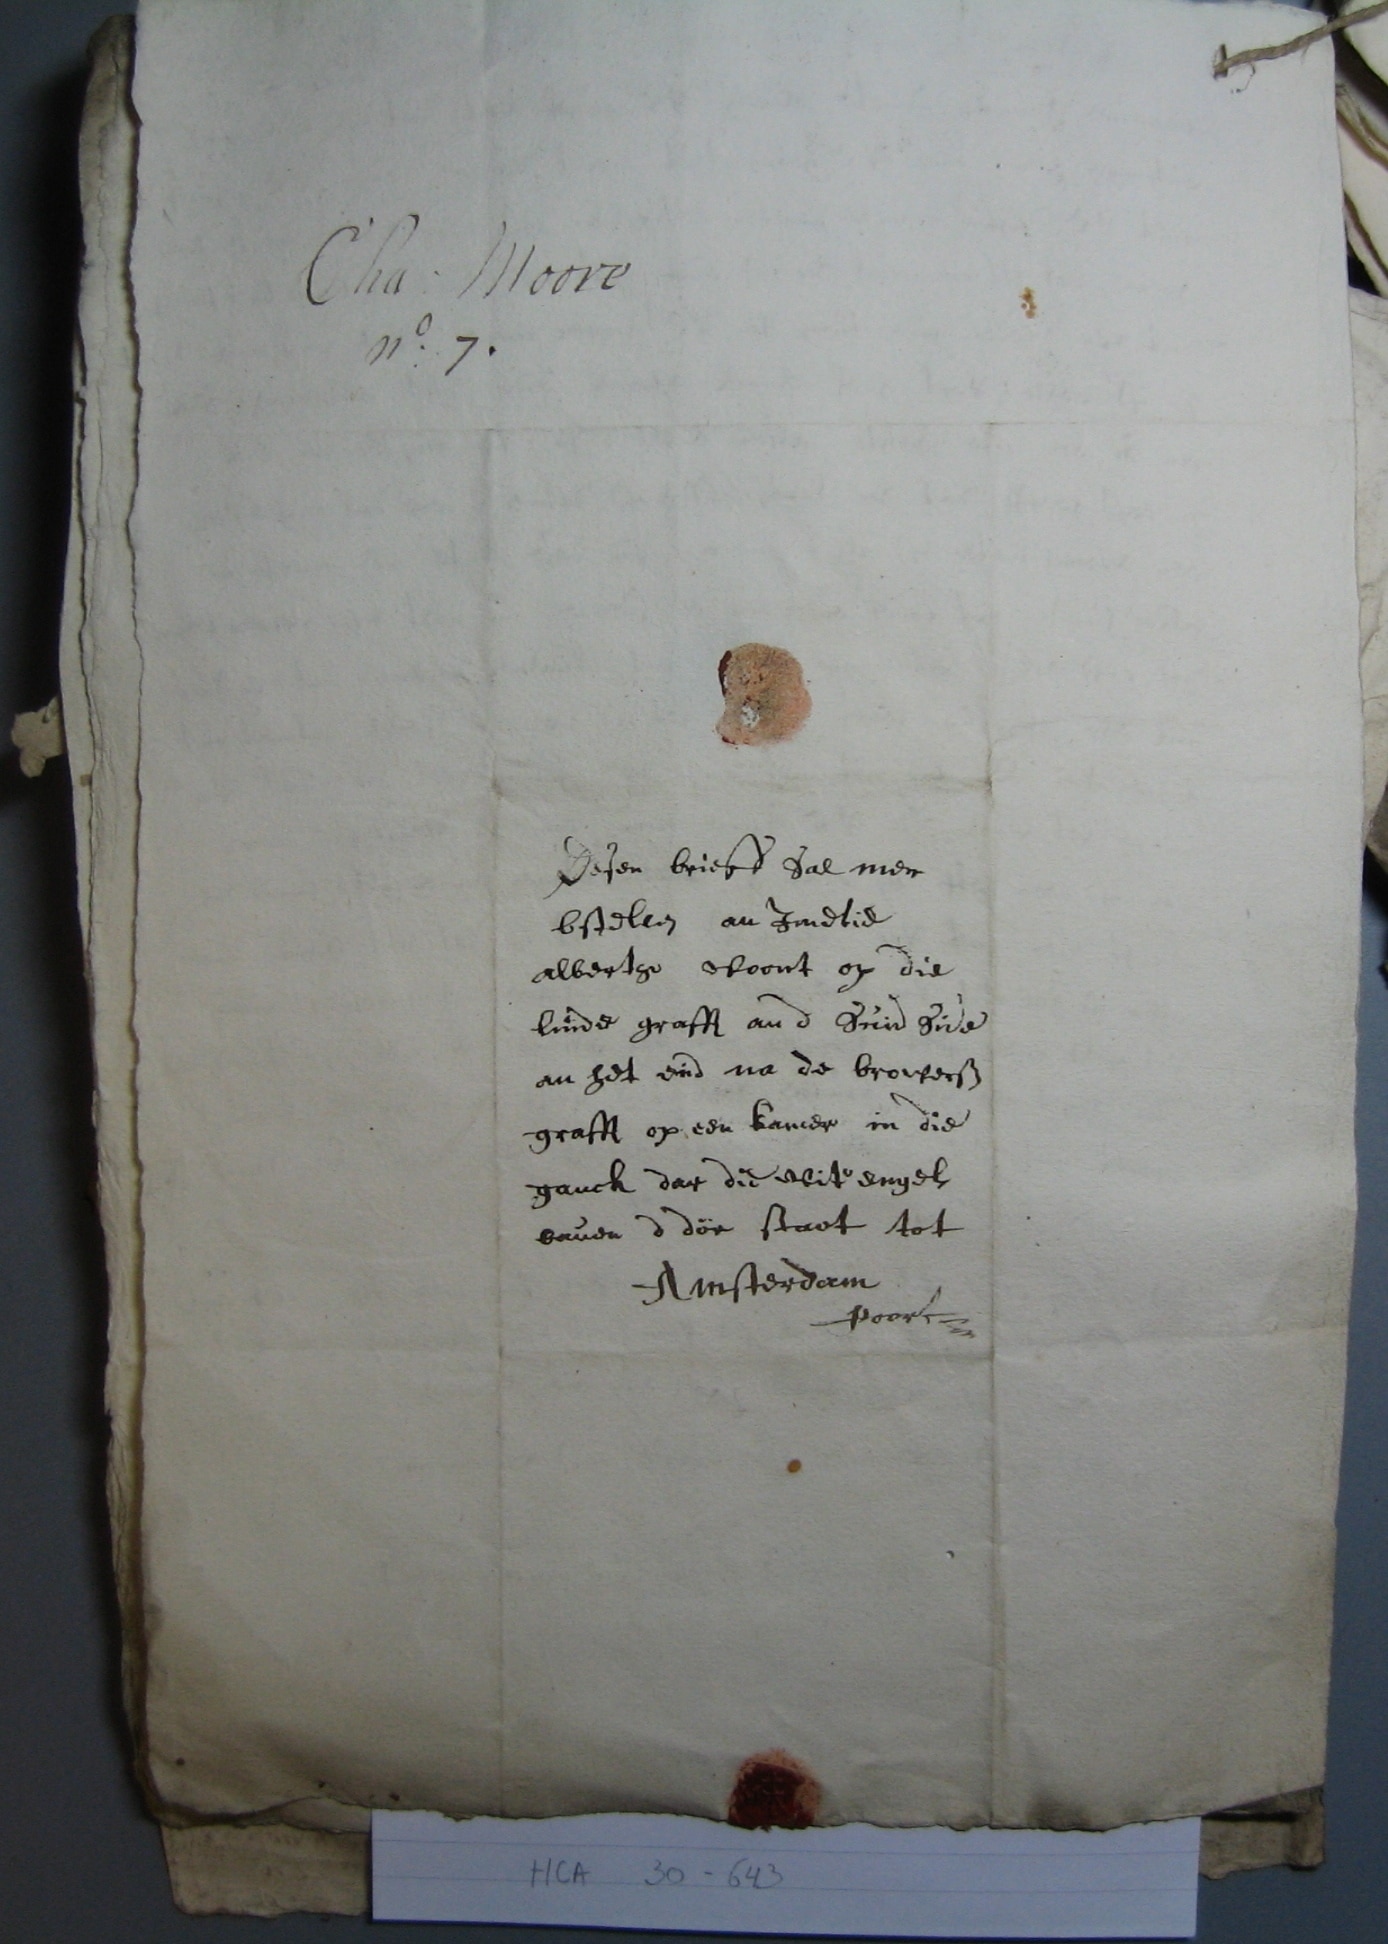 Cha: Moore
no: 7.
Desen brieff Sal men
bstellen an Jmetie
alberthse woont op die
linde grafft an d Suid Side
an het eind na de browerss
grafft op een kamer in die
ganck dar die wite engel
bauen d dör staet tot
Amsterdam
poort
HCA 30-643